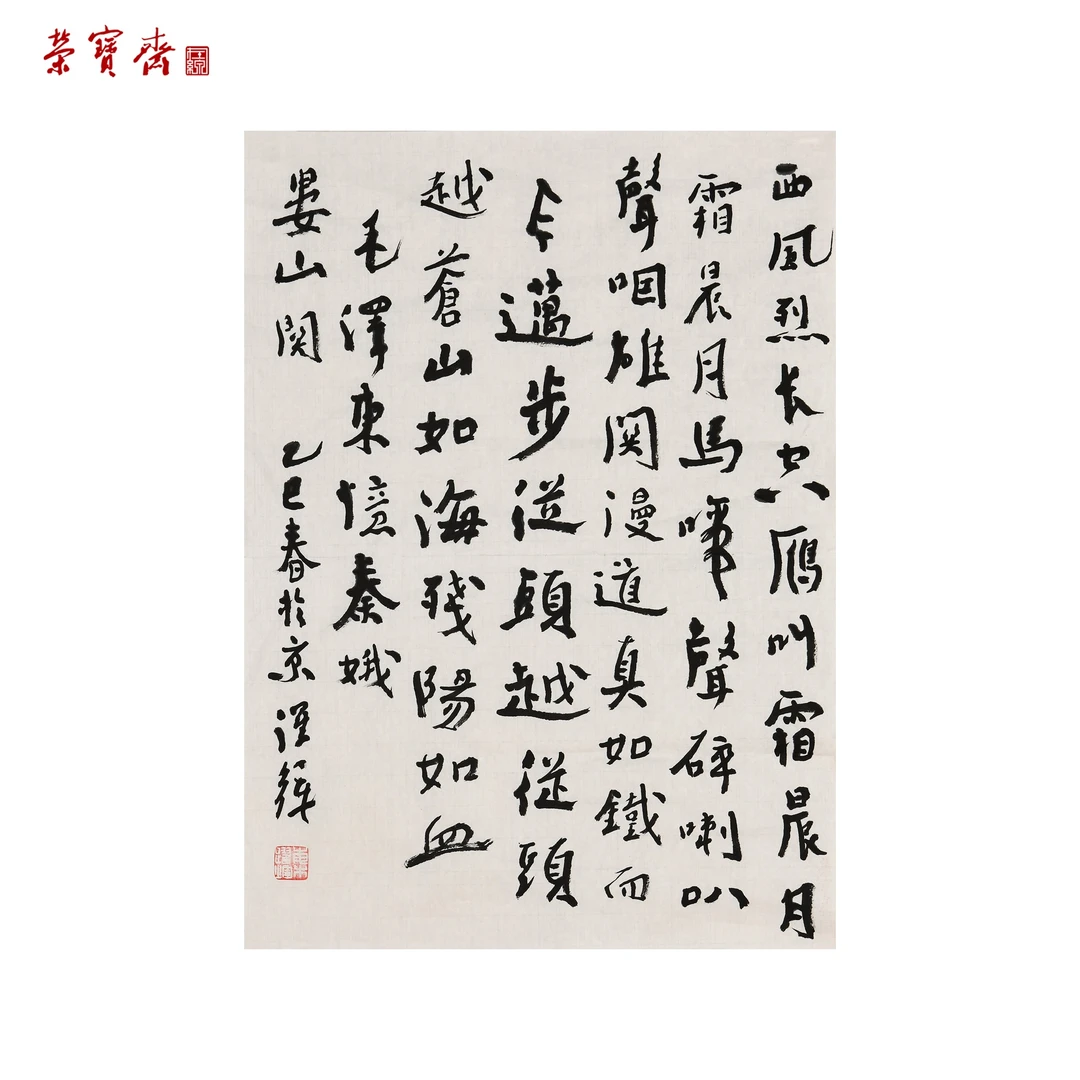 榮寶齋
西風烈长空鴈叫霜晨月
霜晨月馬啼聲碎喇叭
聲咽雄関漫道真如鐵而
今邁步從頭越從頭
越蒼山如海殘陽如血
毛澤東憶秦娥
婁山関 乙巳春於京